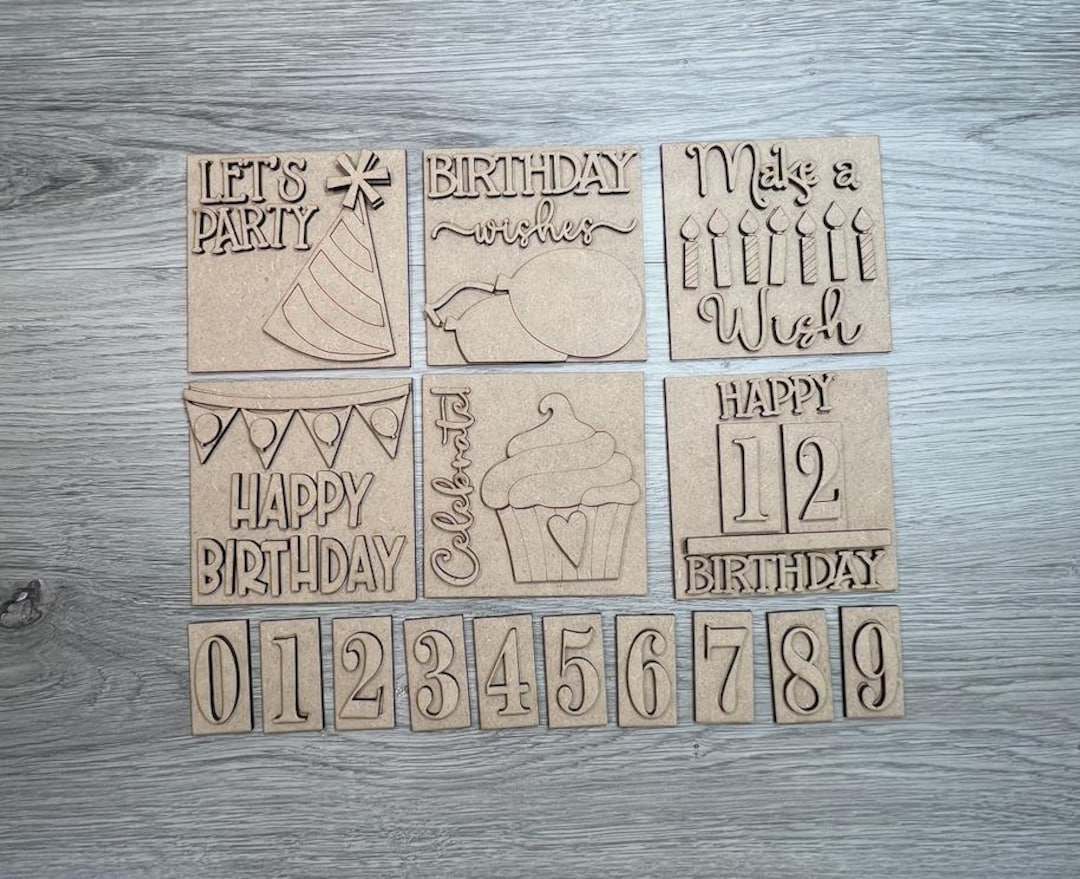 LET'S
PARTY
BIRTHDAY
wishes
Make a
Wish
HAPPY
BIRTHDAY
Celebrate!
HAPPY
12
BIRTHDAY
0 1 2 3 4 5 6 7 8 9